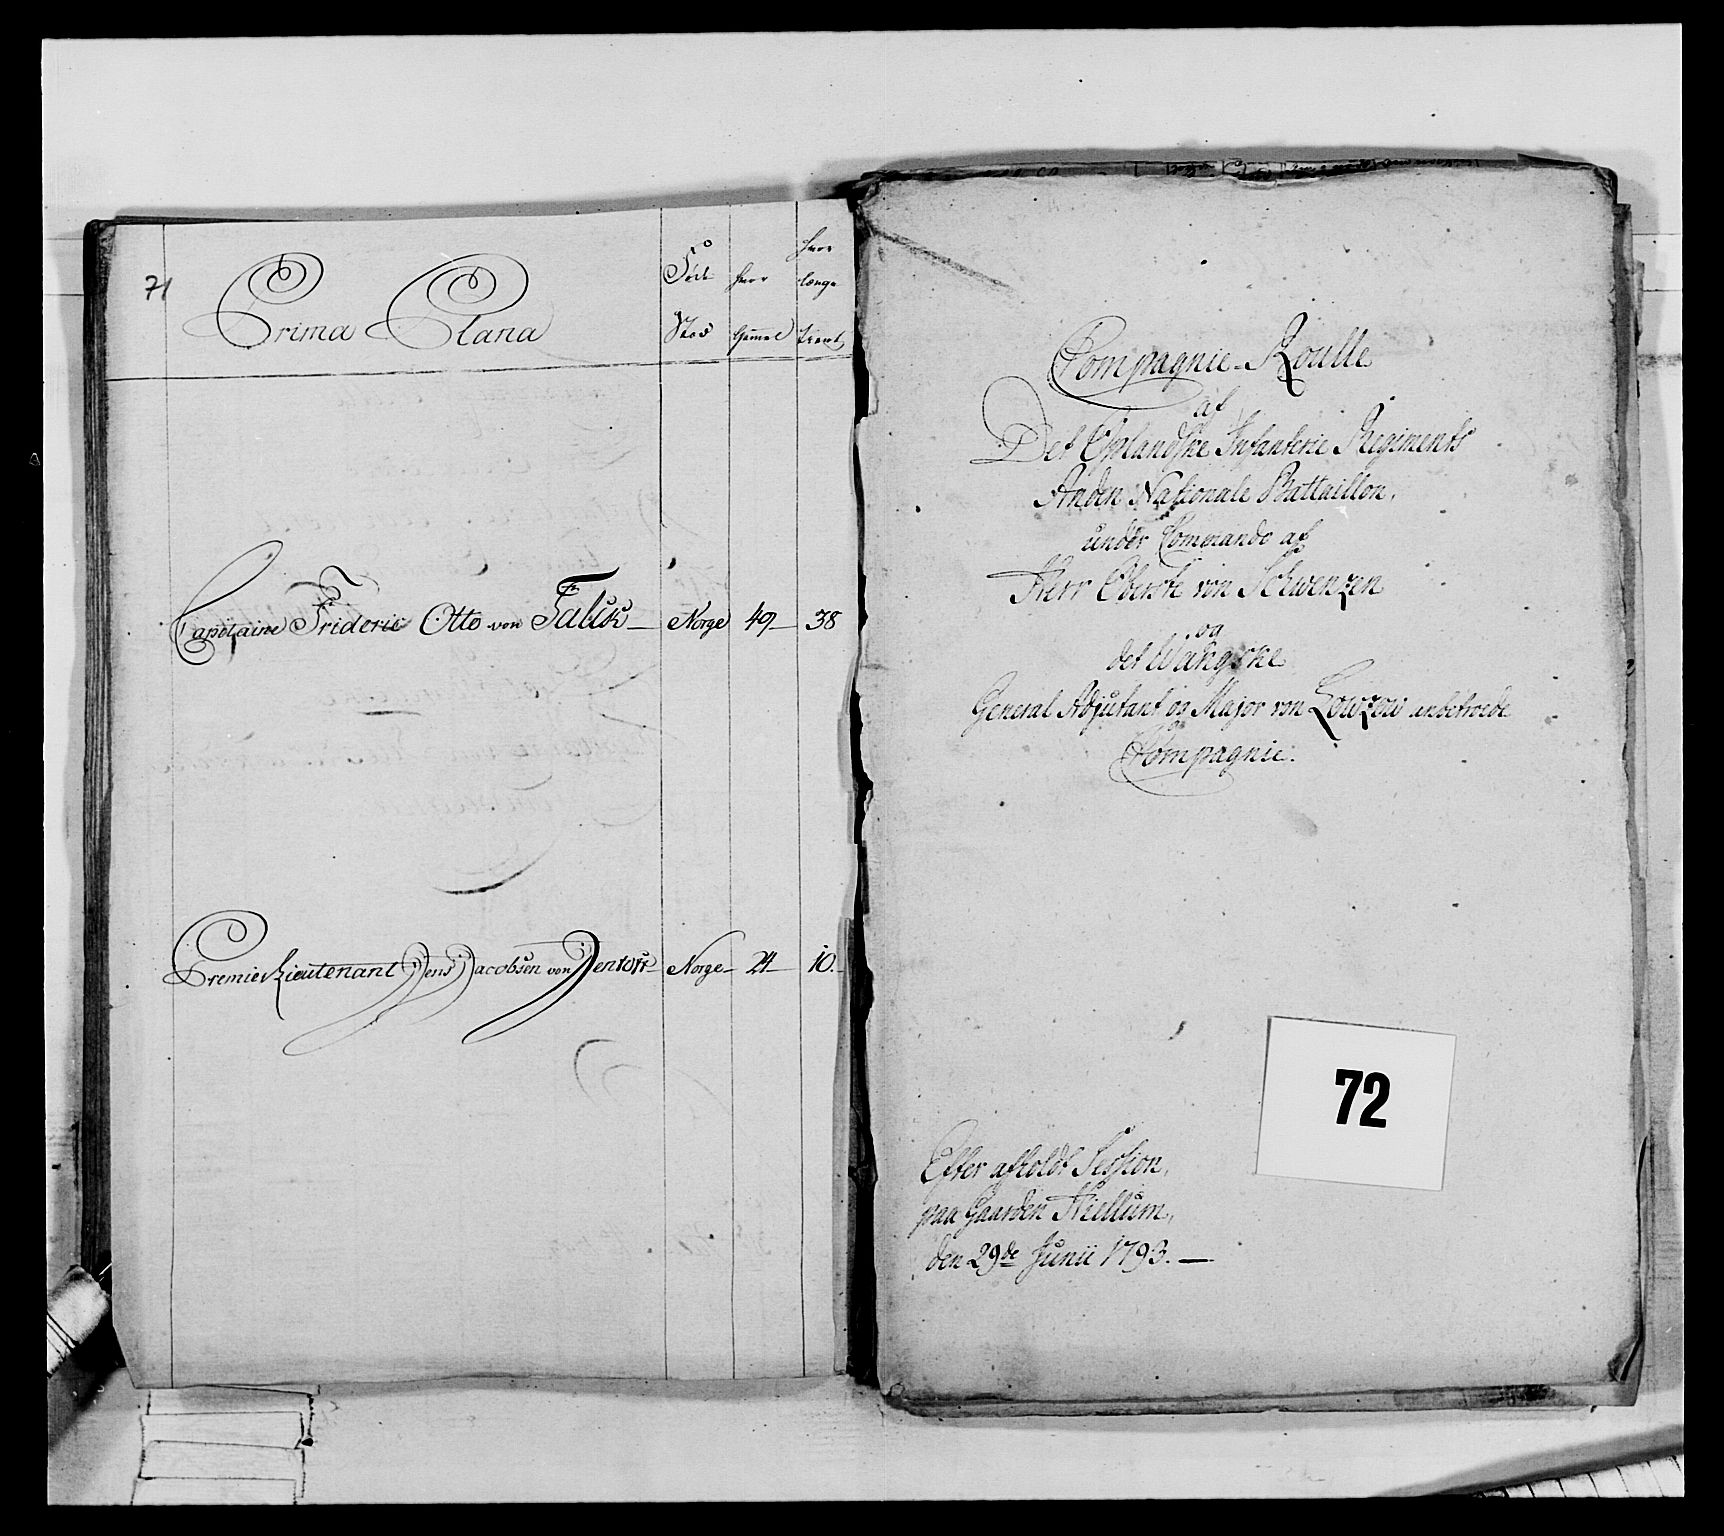 71
Prima Plana
Fød Stæd
hvor Gammel
hvor længe tient
Capitaine Frideric Otto von Falck — Norge 49 — 38
Premier Lieutenant Jens Jacobsen von Jentoft Norge — 24 — 10.
Compagnie-Roulle
af
Det Oplandske Infanterie Regiments
Anden Nationale Battaillon,
under Commando af
Herr Oberste von Schwenzen
og
det Wangske
General Adjutant og Major von Lowzow anbetroede
Compagnie.
72
Efter afholdt Session,
paa Gaarden Hiellum,
den 29de Junii 1793. —